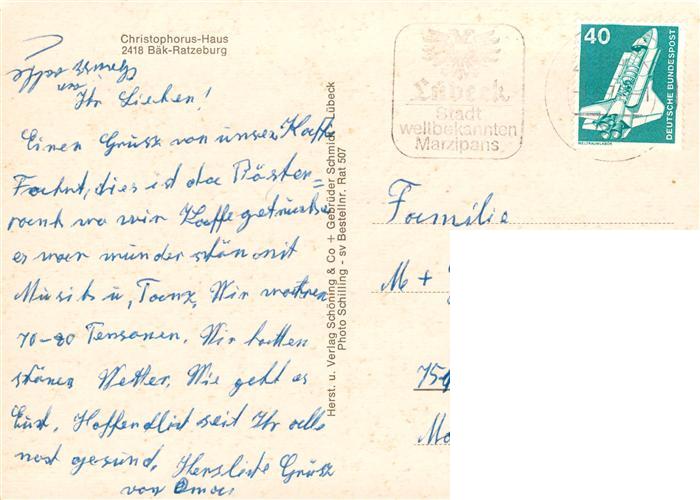 Christophorus-Haus
2418 Bäk-Ratzeburg
Ihr Lieben!
Einen Gruss von unser Kaffe
Fachrt, dies ist das Rösten=
rant wo wir Kaffe getrunken
es war wunder schön mit
Musik u, Tanz, Wir wahren
70-80 Personen. Wir hatten
schönes Wetter, Wie geht es
Euch, Hoffendlich seit Ihr alle
noch gesund, Herzliche Grüsse
von Omas
Herst. u. Verlag Schöning & Co + Gebrüder Schmidt - Lübeck
Photo Schilling - sv Bestellnr. Rat 507
Lübeck
Stadt
weltbekannten
Marzipans
40
DEUTSCHE BUNDESPOST
WELTRAUMLABOR
Familie
M +